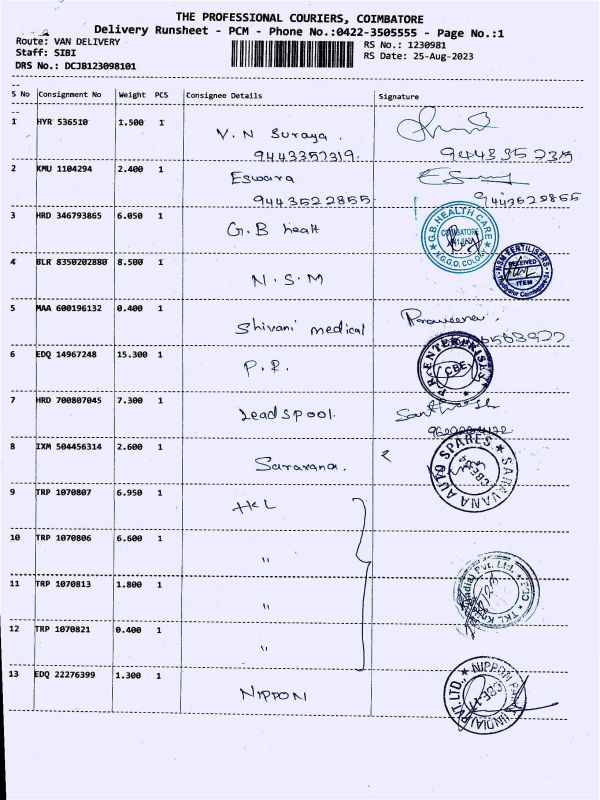 THE PROFESSIONAL COURIERS, COIMBATORE
Delivery Runsheet - PCM - Phone No.:0422-3505555 - Page No.:1
Route: VAN DELIVERY
RS No.: 1230981
Staff: SIBI
RS Date: 25-Aug-2023
DRS No.: DCJB123098101
S No Consignment No Weight PCS Consignee Details Signature
1 HYR 536510 1.500 1 V.N Suraya.
9443352319. 9443352319
2 KMU 1104294 2.400 1 Eswara
9443522855 9443522855
3 HRD 346793865 6.050 1 G.B healt
G.B. HEALTH CARE
COIMBATORE
V.G.G.O. COLONY
4 BLR 8350202880 8.500 1 N.S.M
NSM FERTILISERS
RECEIVED
ITEM
5 MAA 600196132 0.400 1 Shivani medical
6 EDQ 14967248 15.300 1 P.R.
P.R. ENTERPRISES
CBE
7 HRD 700807045 7.300 1 Leadspool. Santhosh
8 IXM 504456314 2.600 1 Saravana.
SARAVANA AUTO SPARES
CBE
9 TRP 1070807 6.950 1
10 TRP 1070806 6.600 1 "
11 TRP 1070813 1.800 1 "
12 TRP 1070821 0.400 1 "
13 EDQ 22276399 1.300 1 NIPPON
NIPPON (INDIA) PVT. LTD.,
CBE-11